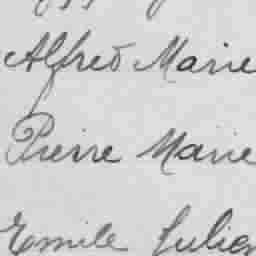 Alfred Marie
Pierre Marie
Emile Julien